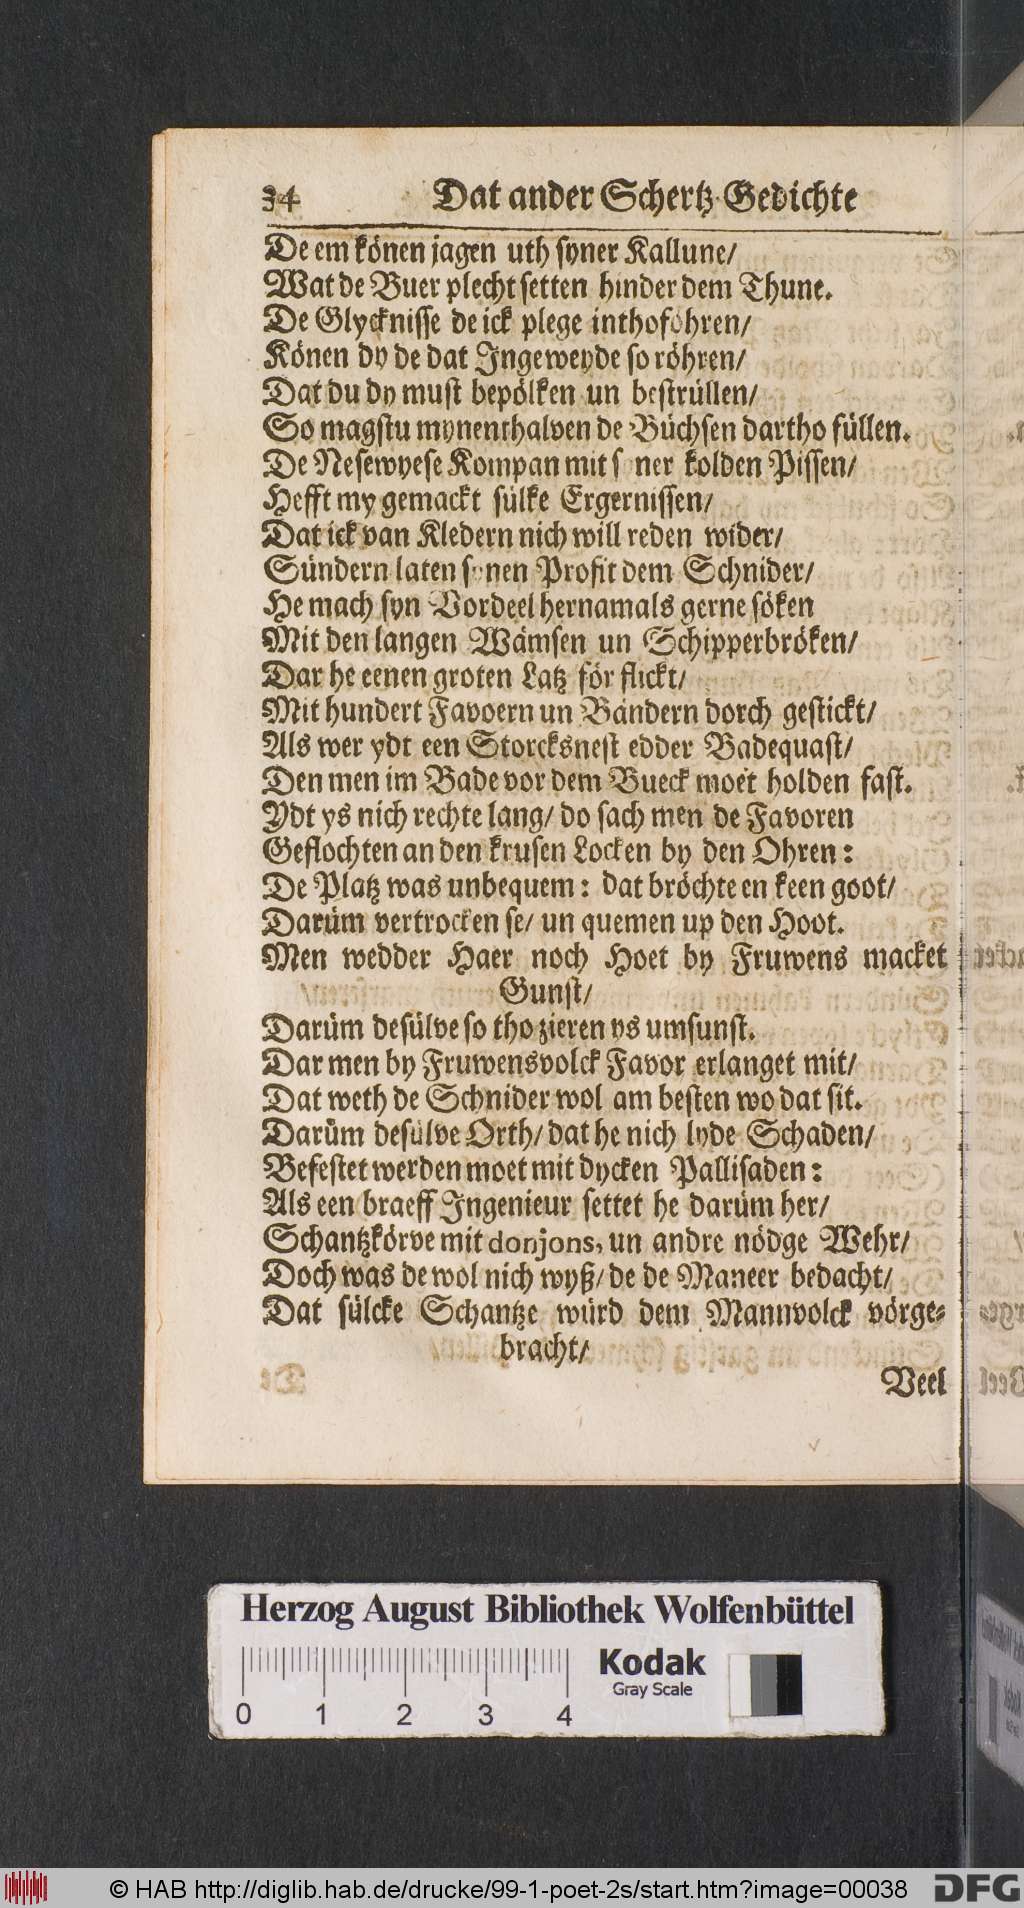 34 Dat ander Schertz Gedichte
De em können jagen uth syner Kallune/
Wat de Buer plecht setten hinder dem Thune.
De Glycknisse de ick plege inthoföhren/
Können dy de dat Ingeweyde so röhren/
Dat du dy must bepölken un bestrüllen/
So magstu mynenthalven de Büchsen dartho füllen.
De Nesewyese Kompan mit syner kolden Pissen/
Hefft my gemackt sülke Ergernissen/
Dat ick van Kledern nich will reden wider/
Sündern laten synen Profit dem Schnider/
He mach syn Vordeel hernamals gerne söken
Mit den langen Wämsen un Schipperbröken/
Dar he eenen groten Latz för flickt/
Mit hundert Favoern un Bändern dorch gestickt/
Als wer ydt een Storcksnest edder Badequast/
Den men im Bade vor dem Bueck moet holden fast.
Ydt ys nich rechte lang/ do sach men de Favoren
Geflochten an den krusen Locken by den Ohren:
De Platz was unbequem: dat bröchte en keen goot/
Darüm vertrocken se/ un quemen up den Hoot.
Men wedder Haer noch Hoet by Fruwens macket
Gunst/
Darüm desülve so tho zieren ys umsunst.
Dar men by Fruwensvolck Favor erlanget mit/
Dat weth de Schnider wol am besten wo dat sit.
Darüm desülve Orth/ dat he nich lyde Schaden/
Befestet werden moet mit dycken Pallisaden:
Als een braeff Ingenieur settet he darüm her/
Schantzkörve mit donjons, un andre nödge Wehr/
Doch was de wol nich wyß/ de de Maneer bedacht/
Dat sülcke Schantze würd dem Mannvolck vörge-
bracht/
Veel
Herzog August Bibliothek Wolfenbüttel
Kodak
Gray Scale
0 1 2 3 4
© HAB http://diglib.hab.de/drucke/99-1-poet-2s/start.htm?image=00038
DFG